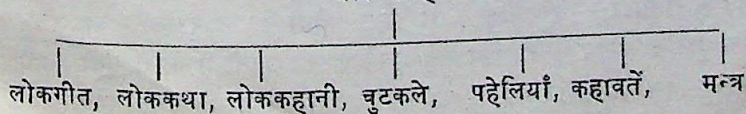 लोकगीत, लोककथा, लोककहानी, चुटकले, पहेलियाँ, कहावतें, मन्त्र